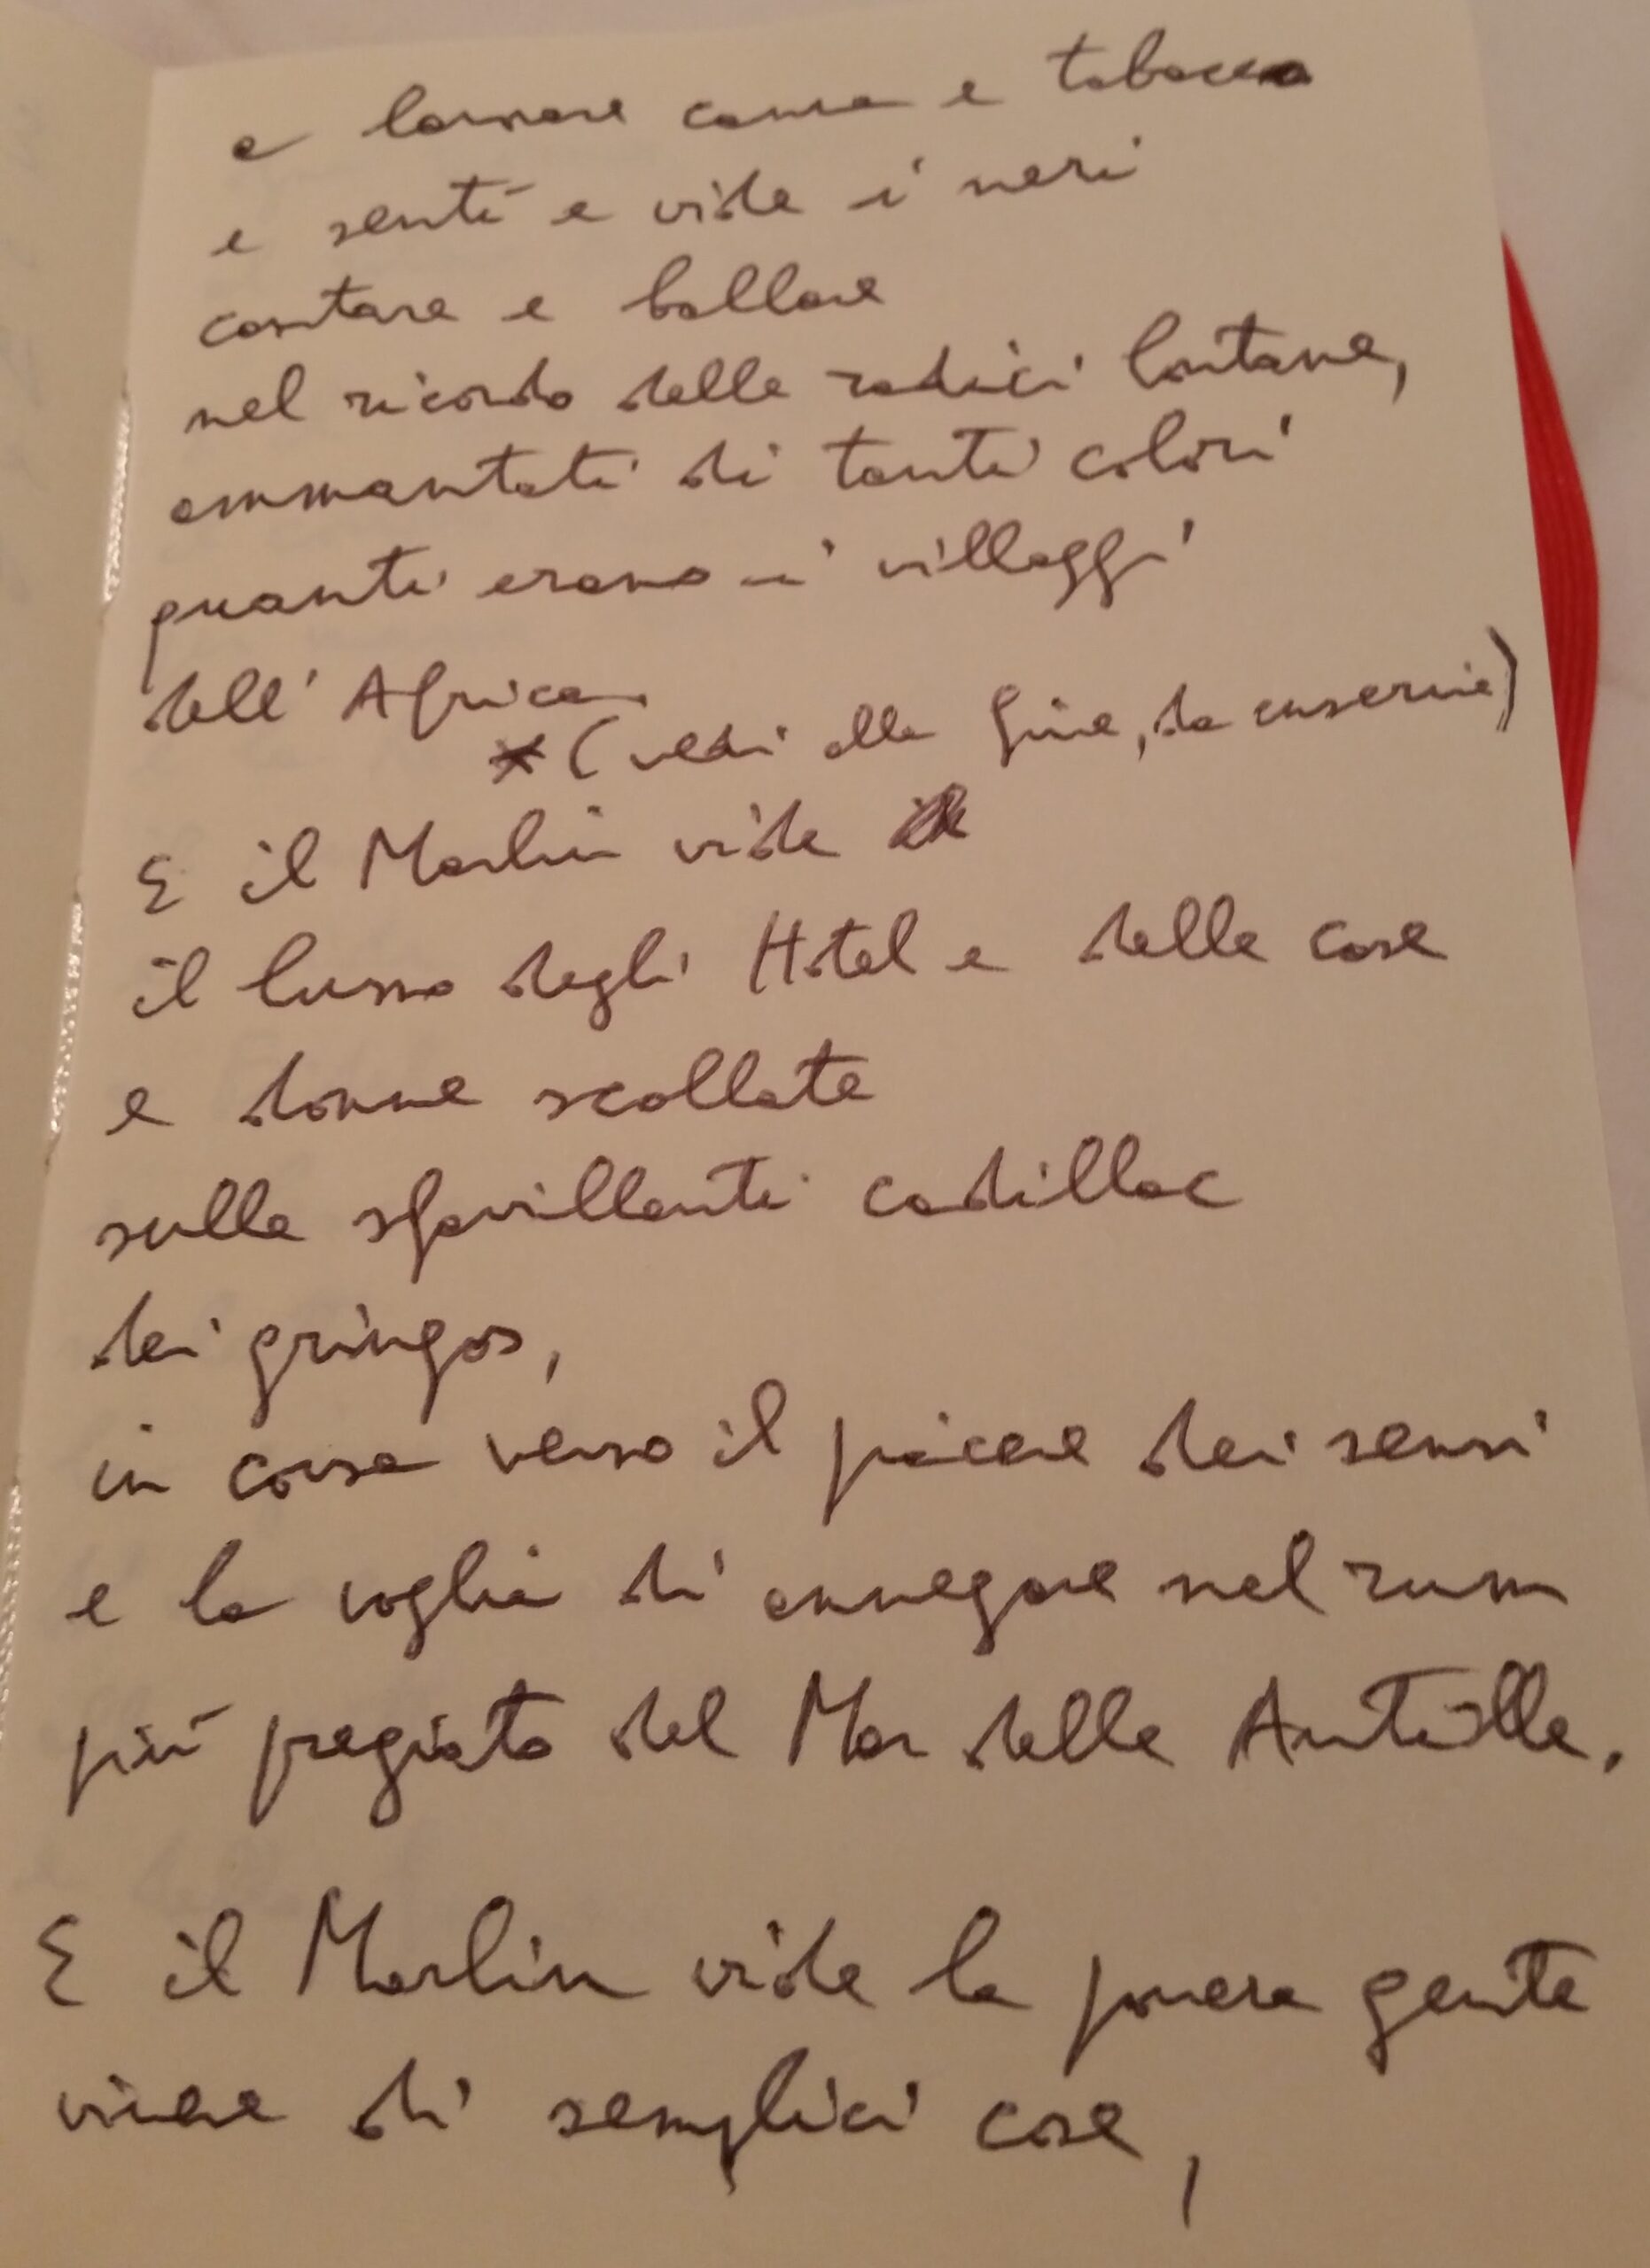 a lavorare canna e tabacco
e sentì e vide i neri
cantare e ballare
nel ricordo delle radici lontane,
ammantati di tanti colori
quanti erano i villaggi
dell'Africa.
*(vedi alla fine, da inserire)
E il Marlin vide
il lusso degli Hotel e delle case
e donne scollate
sulle sfavillanti cadillac
dei gringos,
in corsa verso il piacere dei sensi
e la voglia di annegare nel rum
più pregiato del Mar delle Antille.
E il Marlin vide la povera gente
vivere di semplici cose,